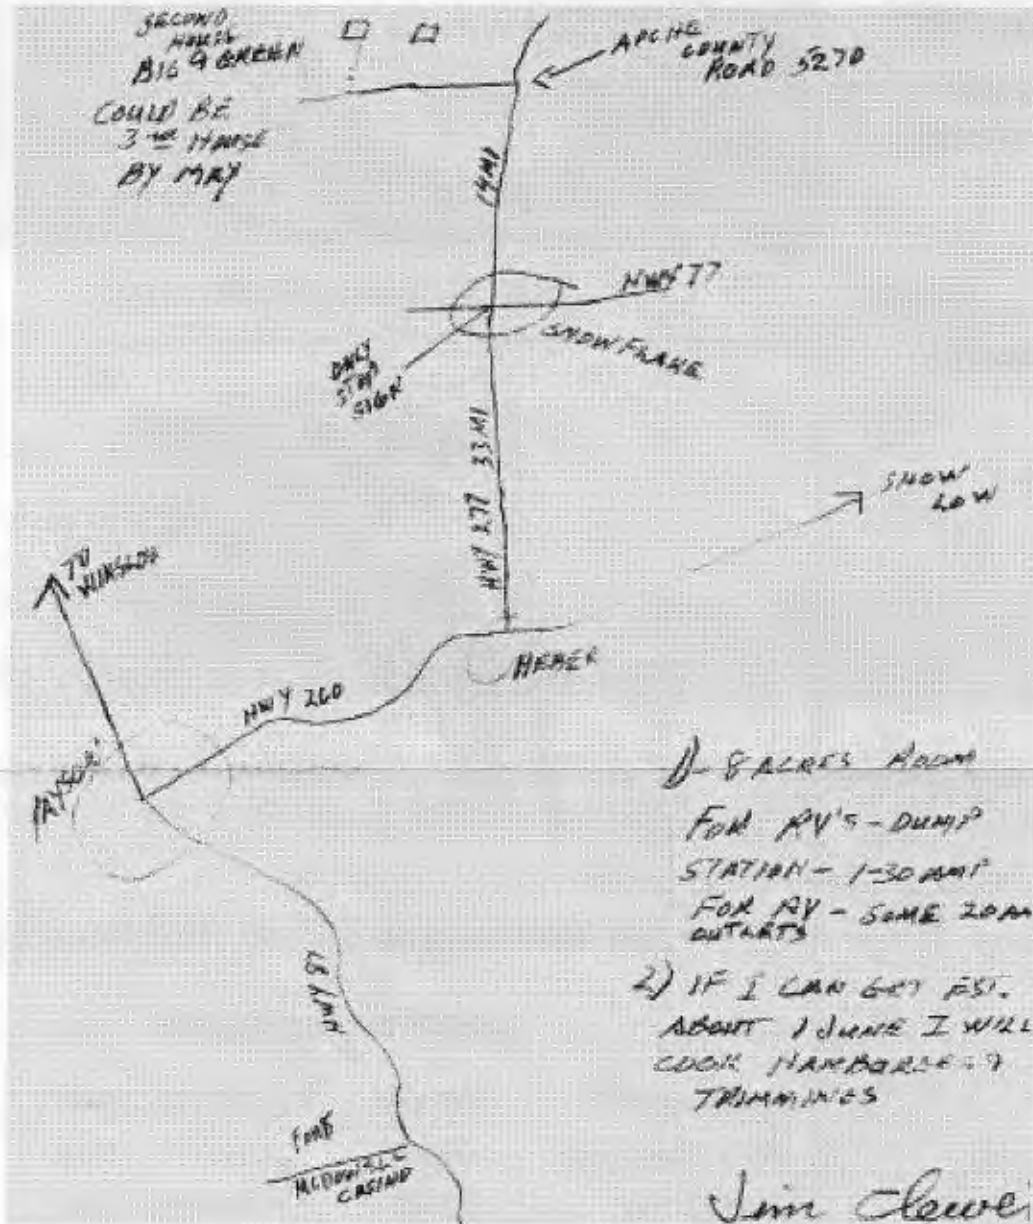 SECOND
HOUSE
BIG & GREEN
COULD BE
3RD HOUSE
BY MAY
APCHE
COUNTY
ROAD 5270
14 MI
HWY 77
SNOWFLAKE
ONLY
STOP
SIGN
HWY 277 33 MI
SHOW
LOW
TO
WINSLOW
HEBER
HWY 260
PAYSON
HWY 87
FORT
MCDOWELL
CASINO
1) - 8 ACRES ROOM
FOR RV'S - DUMP
STATION - 1-30 AMP
FOR RV - SOME 20 AM
OUTLETS
2) IF I CAN GET EST.
ABOUT 1 JUNE I WILL
COOK HAMBURGERS &
TRIMMINGS
Jim